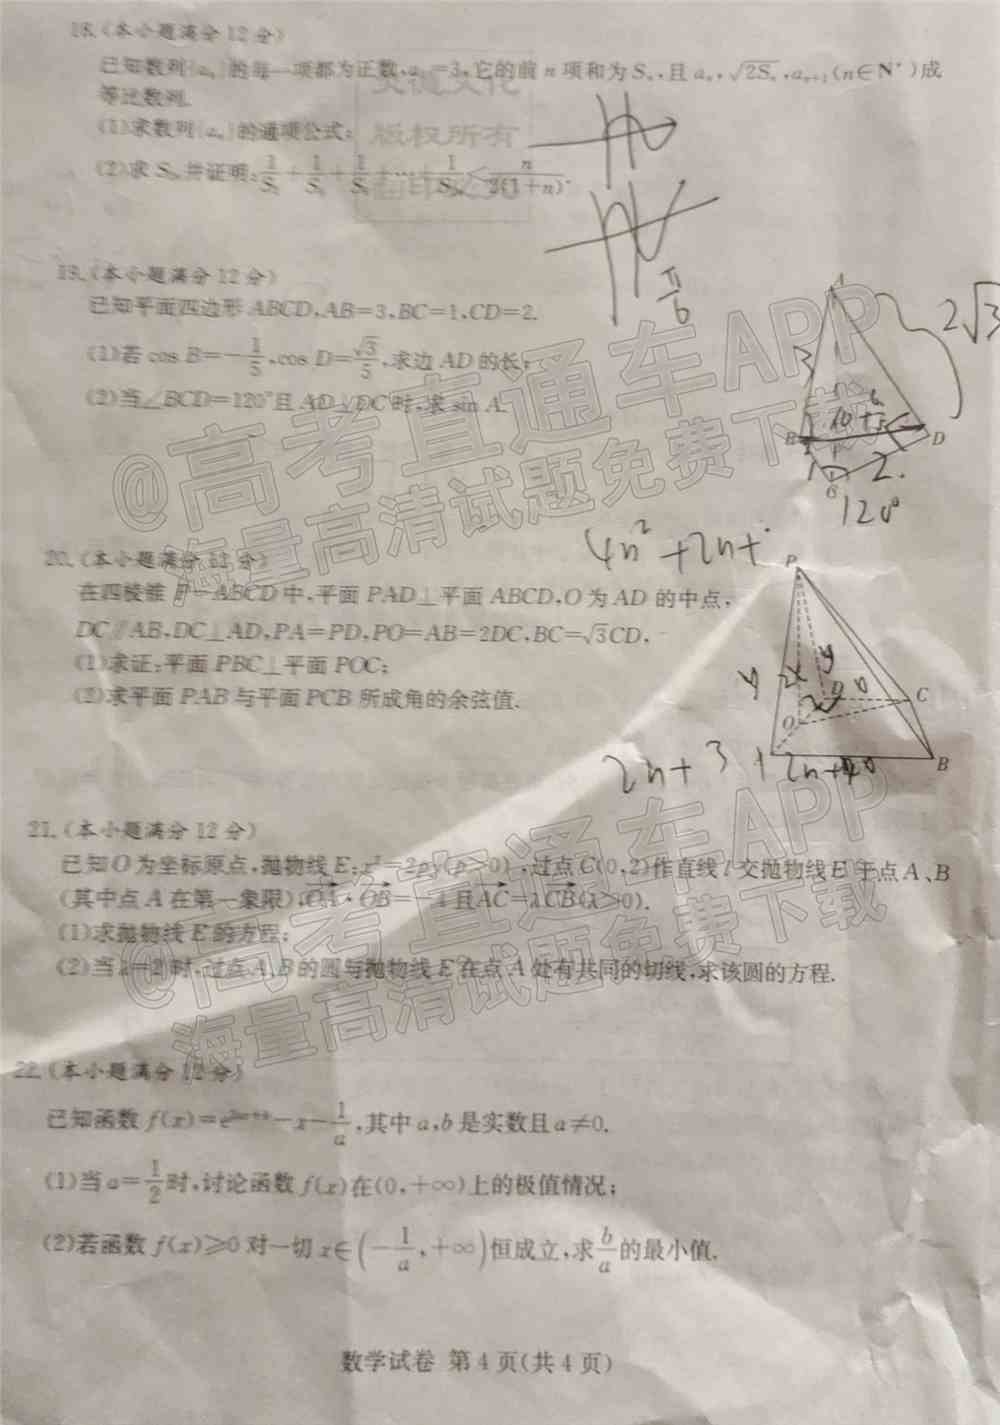 18.(本小题满分12分)
已知数列{aₙ}的每一项都为正数,a₁=3,它的前n项和为Sₙ,且aₙ,√2Sₙ,aₙ₊₁(n∈N*)成
等比数列.
(1)求数列{aₙ}的通项公式;
(2)求 并证明: 1/S₂ + 1/S₄ + 1/S₆ +⋯+ < n/2(1+n).
版权所有
π/6
19.(本小题满分12分)
已知平面四边形ABCD,AB=3,BC=1,CD=2.
(1)若cos B=-1/5,cos D=√3/5,求边AD的长;
(2)当∠BCD=120°且AD⊥DC时,求sin A.
2√3
3
B
D
1
2.
120°
@高考直通车APP
海量高清试题免费下载
4n²+2n+
20.(本小题满分12分)
在四棱锥P-ABCD中,平面PAD⊥平面ABCD,O为AD的中点,
DC∥AB,DC⊥AD,PA=PD,PO=AB=2DC,BC=√3CD.
(1)求证:平面PBC⊥平面POC;
(2)求平面PAB与平面PCB所成角的余弦值.
P
C
O
B
2n+3+2n+
21.(本小题满分12分)
已知O为坐标原点,抛物线E:x²=2py(p>0),过点C(0,2)作直线l交抛物线E于点A、B
(其中点A在第一象限),OA·OB=-4且AC=λCB(λ>0).
(1)求抛物线E的方程;
(2)当λ=2时,过点A、B的圆与抛物线E在点A处有共同的切线,求该圆的方程.
@高考直通车APP
海量高清试题免费下载
22.(本小题满分12分)
已知函数f(x)= -x-1/a,其中a,b是实数且a≠0.
(1)当a=1/2时,讨论函数f(x)在(0,+∞)上的极值情况;
(2)若函数f(x)≥0对一切x∈(-1/a,+∞)恒成立,求b/a的最小值.
数学试卷 第4页(共4页)